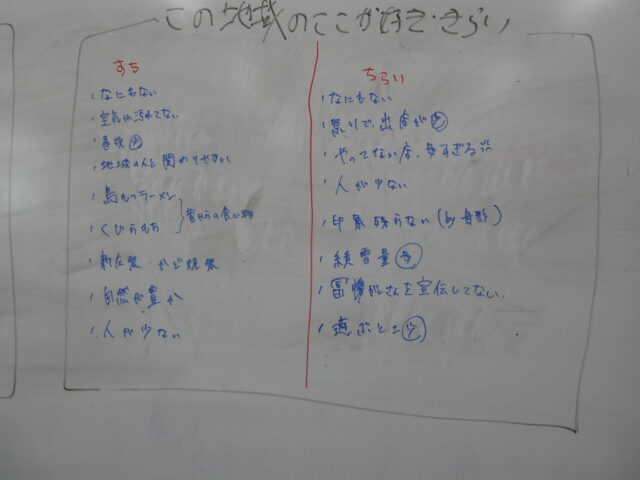 この地域のここが好き・きらい
すち
・なにもない
・空気が汚れてない
・地域の人と関わりやすい
・鳥もつラーメン
・くぢらもち
昔からの食べ物
・新庄祭・かど焼祭
・自然が豊か
・人が少ない
ちらい
・なにもない
・祭りで、出店が少
・やってない店、多すぎる
・人が少ない
・印象残らない
・積雪量 多
・冨樫がさんを宣伝してない.
・遊ぶところ少